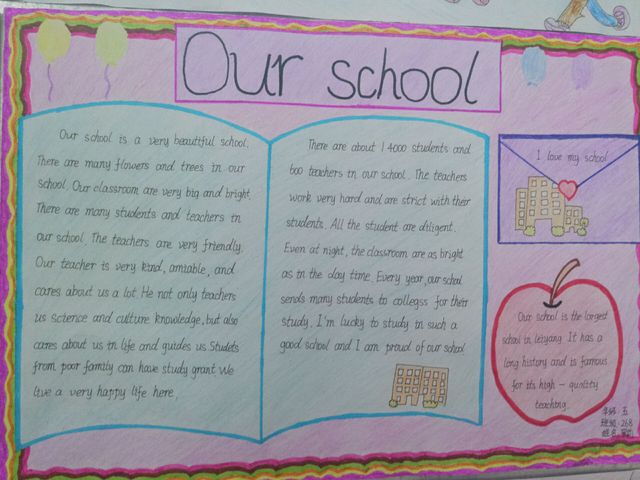 Our school
Our school is a very beautiful school.
There are many flowers and trees in our
school. Our classroom are very big and bright.
There are many students and teachers in
our school. The teachers are very friendly.
Our teacher is very kind, amiable, and
cares about us a lot. He not only teachers
us science and culture knowledge, but also
cares about us in life and guides us Students
from poor family can have study grant We
live a very happy life here.
There are about 14000 students and
600 teachers in our school. The teachers
work very hard and are strict with their
students. All the student are diligent.
Even at night, the classroom are as bright
as in the day time. Every year, our school
sends many students to collegss for their
study. I'm lucky to study in such a
good school and I am proud of our school
I love my school
Our school is the largest
school in leiyang. It has a
long history and is famous
for its high - quality
teaching.
五
班级: 268
姓名: